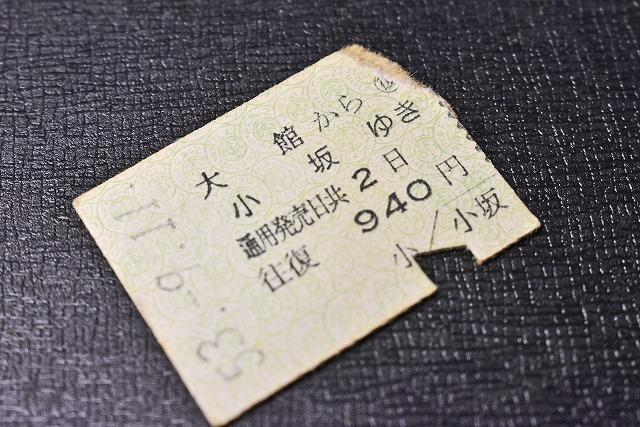 53.-9.11
大館から
小坂ゆき
通用発売日共2日
往復 940円
小／小坂